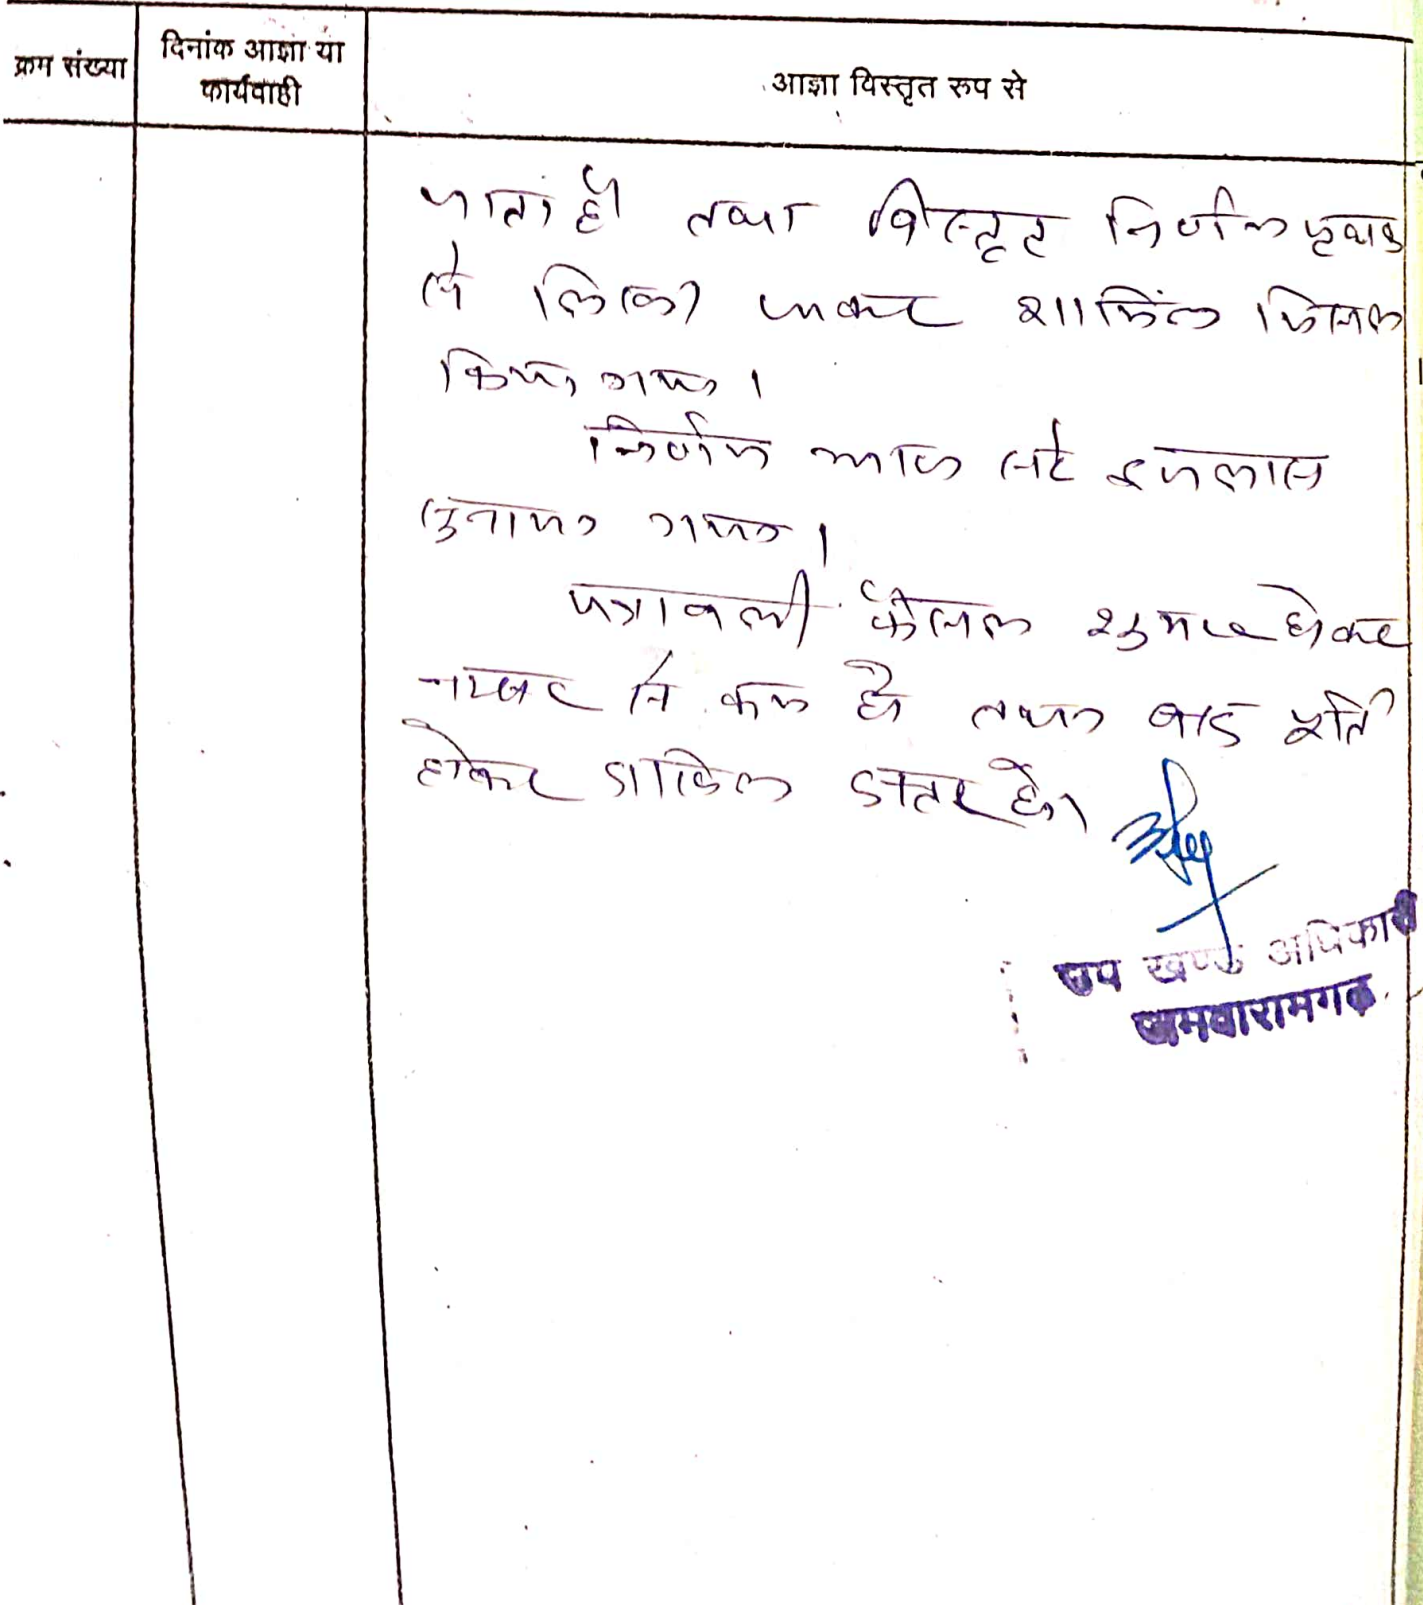 क्रम संख्या
दिनांक आज्ञा या
कार्यवाही
आज्ञा विस्तृत रूप से
जाता है तथा विस्तृत निर्णय पृथक
से लिखा जाकर शामिल मिसल
किया गया।
निर्णय आज सरे इजलास
सुनाया गया।
पत्रावली फैसल शुमार होकर
नम्बर से कम हो तथा बाद पूर्ति
होकर दाखिल दफ्तर हो।
उप खण्ड अधिकारी
जमवारामगढ़